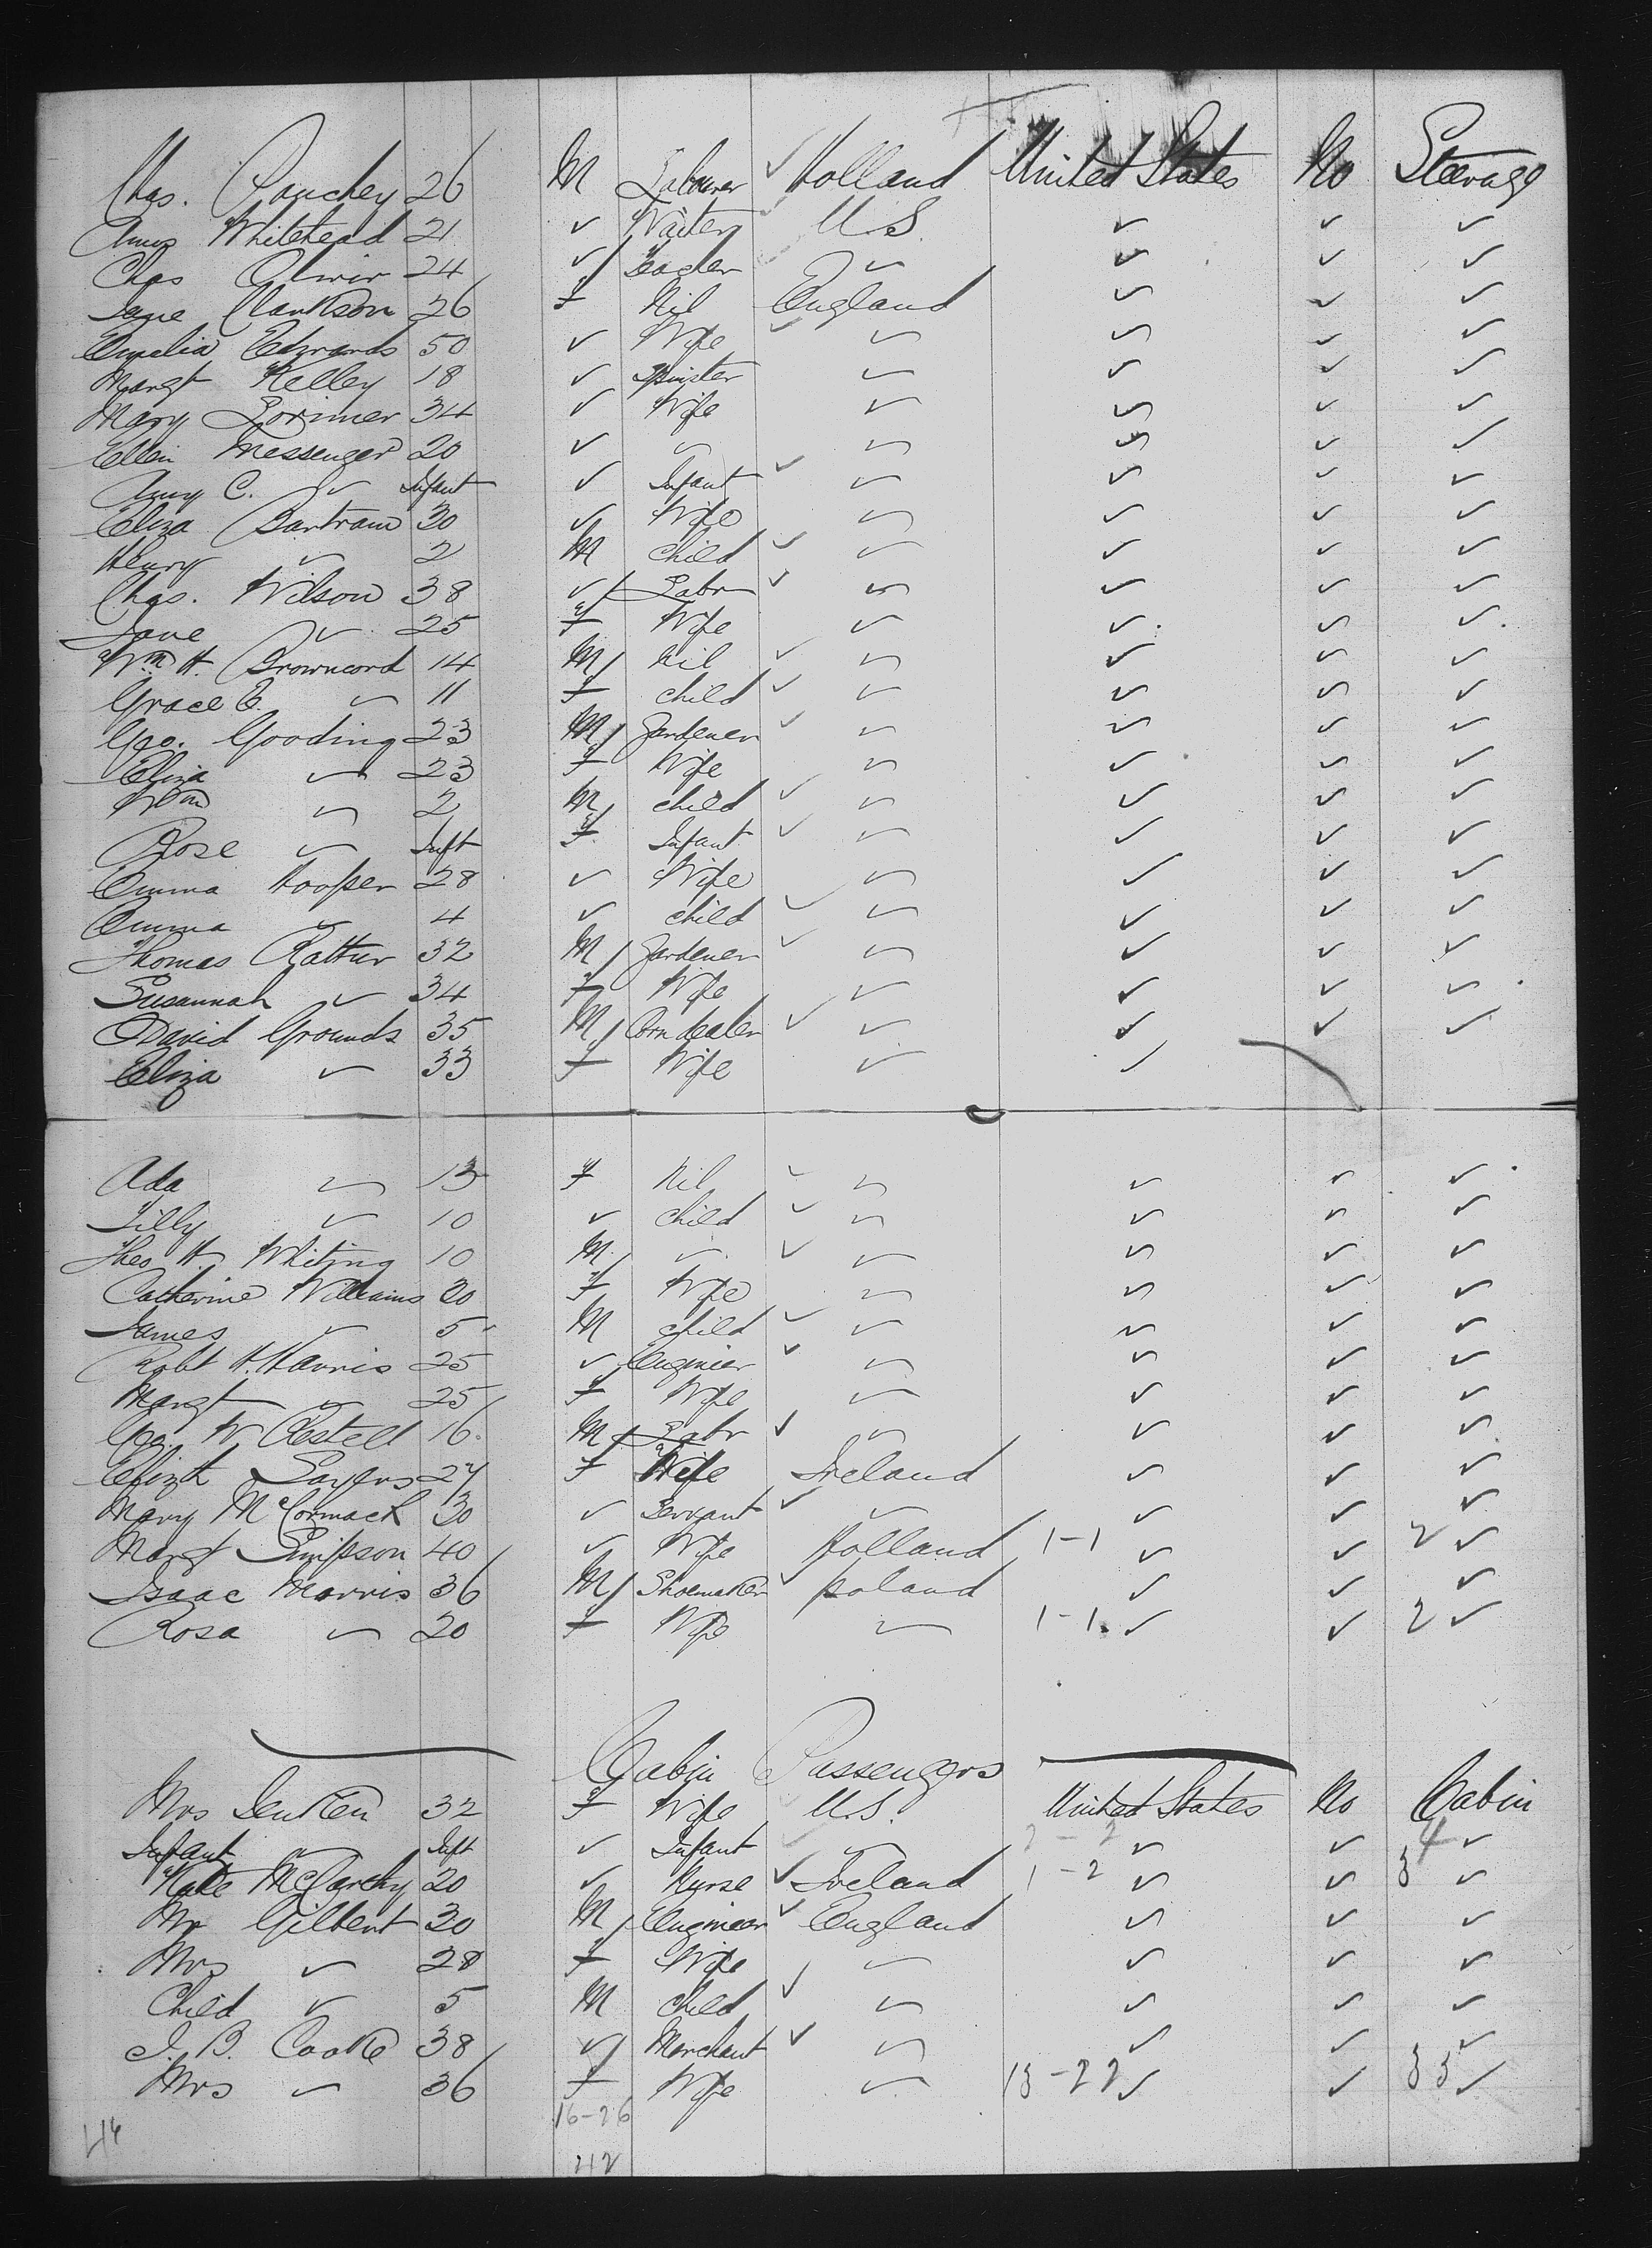 Chas. Pauchey 26 M Labourer ✓ Holland United States No Steerage
Amos Whitehead 21 ✓ Waiter U S ✓ ✓ ✓
Chas Oliver 24 ✓ ✓ ✓ ✓ ✓
Jane Clarkson 26 F Nil England ✓ ✓ ✓
Emelia Edwards 50 ✓ Wife ✓ ✓ ✓ ✓
Margt Kelley 18 ✓ Spinster ✓ ✓ ✓ ✓
Mary Lorimer 34 ✓ Wife ✓ ✓ ✓ ✓
Ellen Messenger 20 ✓ ✓ ✓ ✓ ✓ ✓
Amy C. ✓ Infant ✓ Infant ✓ ✓ ✓ ✓ ✓
Eliza Bartram 30 ✓ Wife ✓ ✓ ✓ ✓
Henry ✓ 2 M Child ✓ ✓ ✓ ✓ ✓
Chas. Wilson 38 ✓ Labr ✓ ✓ ✓ ✓ ✓
Jane ✓ 25 F Wife ✓ ✓ ✓ ✓
Wm H. Browncord 14 M Nil ✓ ✓ ✓ ✓ ✓
Grace E. ✓ 11 F child ✓ ✓ ✓ ✓ ✓
Geo. Gooding 23 M Gardener ✓ ✓ ✓ ✓ ✓
Eliza ✓ 23 F Wife ✓ ✓ ✓ ✓
Wm ✓ 2 M child ✓ ✓ ✓ ✓ ✓
Rose ✓ Inft F. Infant ✓ ✓ ✓ ✓ ✓
Emma Hooper 28 ✓ Wife ✓ ✓ ✓ ✓
Emma ✓ 4 ✓ child ✓ ✓ ✓ ✓ ✓
Thomas Rattur 32 M Gardener ✓ ✓ ✓ ✓ ✓
Susannah ✓ 34 F Wife ✓ ✓ ✓ ✓
David Grounds 35 M Corn dealer ✓ ✓ ✓ ✓ ✓
Eliza ✓ 33 F Wife ✓ ✓
Ada ✓ 13 F Nil ✓ ✓ ✓ ✓ ✓
Tilly ✓ 10 ✓ child ✓ ✓ ✓ ✓ ✓
Theo H. Whiting 10 M ✓ ✓ ✓ ✓ ✓ ✓
Catherine Williams 30 F Wife ✓ ✓ ✓ ✓
James ✓ 5 M child ✓ ✓ ✓ ✓ ✓
Robt H. Harris 25 ✓ Engineer ✓ ✓ ✓ ✓ ✓
Margt ✓ 25 F Wife ✓ ✓ ✓ ✓
Geo W Restell 16 M Labr ✓ ✓ ✓ ✓ ✓
Elizth Sayers 27 F Wife Ireland ✓ ✓ ✓
Mary McCormack 30 ✓ Servant ✓ ✓ ✓ ✓ ✓
Margt Simpson 40 ✓ Wife Holland 1-1 ✓ ✓ 2 ✓
Isaac Morris 36 M Shoemaker ✓ Poland ✓ ✓ ✓
Rosa ✓ 20 F Wife ✓ 1-1 ✓ ✓ 2 ✓
Cabin Passengers
Mrs Denken 32 F Wife U.S. United States No Cabin
Infant ✓ Inft ✓ Infant ✓ ✓ 2-2 ✓ ✓ 4 ✓
Kate McCarthy 20 ✓ Nurse ✓ Ireland 1-2 ✓ ✓ 3 ✓
Mr Gilbert 30 M Engineer ✓ England ✓ ✓ ✓
Mrs ✓ 28 F Wife ✓ ✓ ✓ ✓
Child ✓ 5 M Child ✓ ✓ ✓ ✓ ✓
J. B. Cooke 38 ✓ Merchant ✓ ✓ ✓ ✓ ✓
Mrs ✓ 36 F Wife ✓ 13-22 ✓ ✓ 33 ✓
16-26
46
42